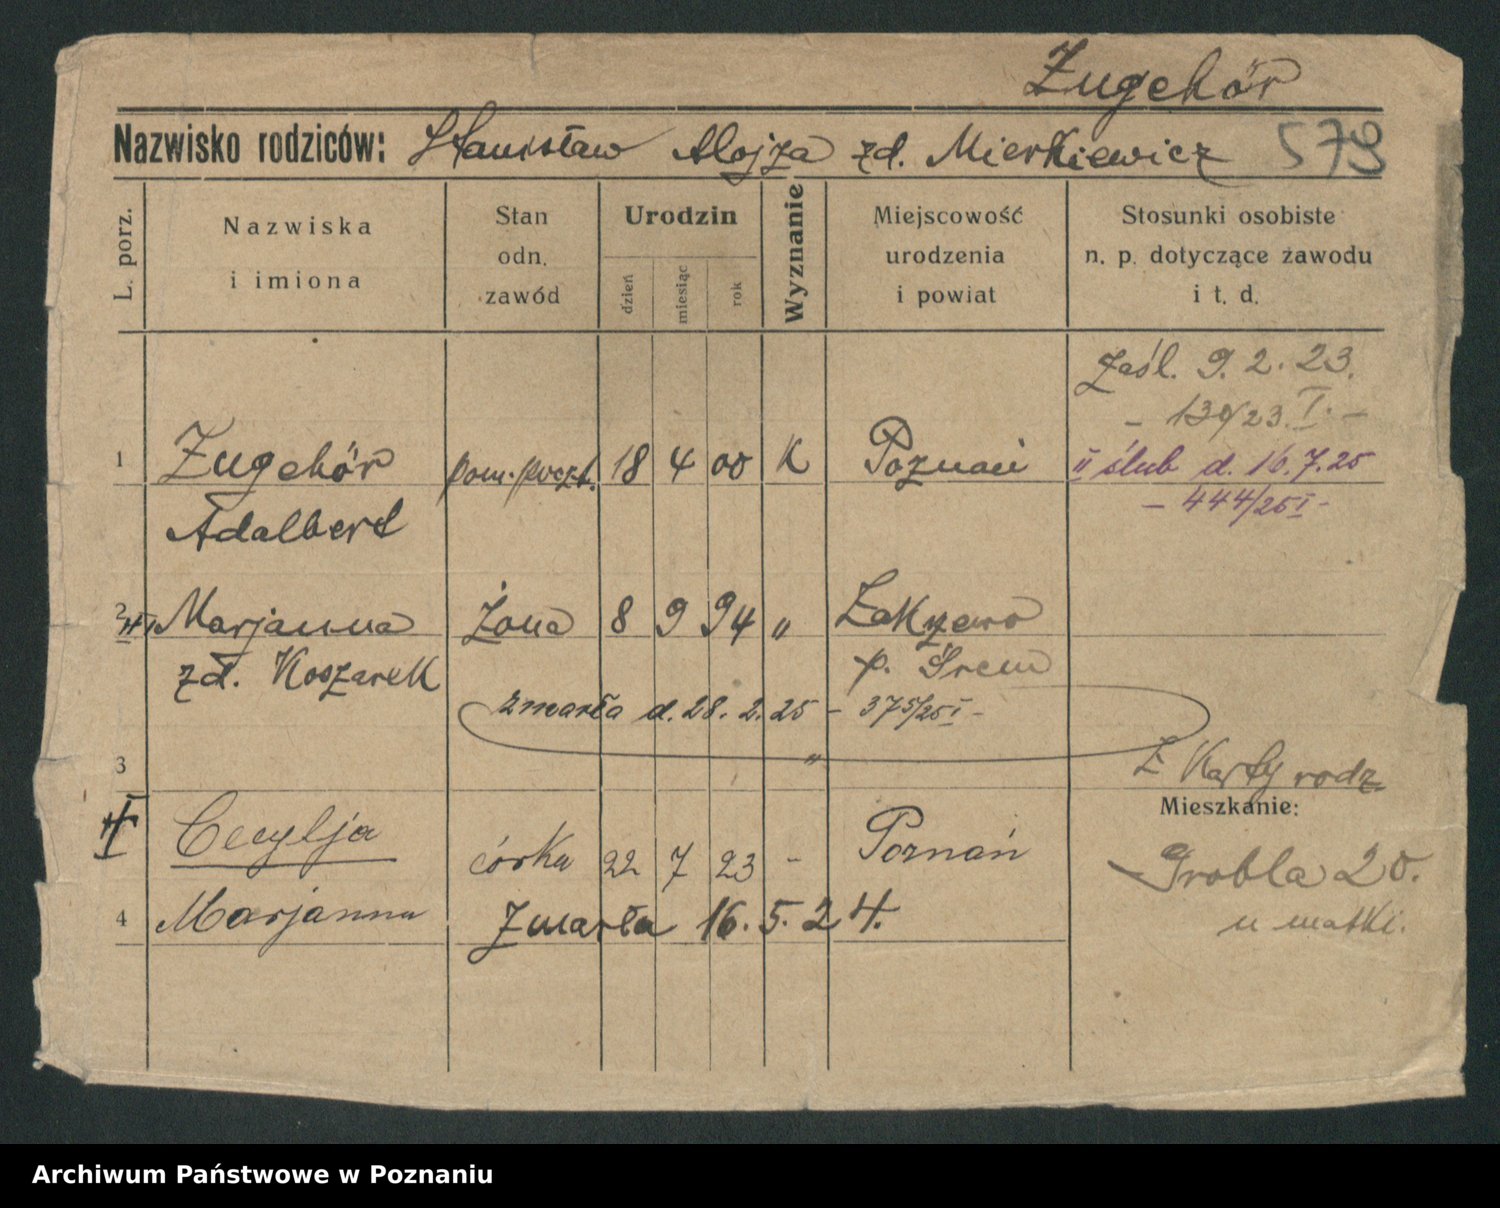 Zugehör
Nazwisko rodziców: Stanisław Alojza zd. Mierkiewicz 579
L. porz.
Nazwiska
i imiona
Stan
odn.
zawód
Urodzin
dzień
miesiąc
rok
Wyznanie
Miejscowość
urodzenia
i powiat
Stosunki osobiste
n. p. dotyczące zawodu
i t. d.
zaśl. 9. 2. 23.
- 130/23 I. -
1 Zugehör pom. poczt. 18 4 00 K Poznań II ślub d. 16.7.25
- 444/25 I -
Adalbert
2 Marjanna Żona 8 9 94 " Zakrzewo
zd. Koszarek p. Śrem
zmarła d. 28. 2. 25 - 375/25 I -
3 "
Z Karty rodz.
Mieszkanie:
Cecylja córka 22 7 23 - Poznań
Grobla 20.
4 Marjanna zmarła 16. 5. 24.
u matki.
Archiwum Państwowe w Poznaniu